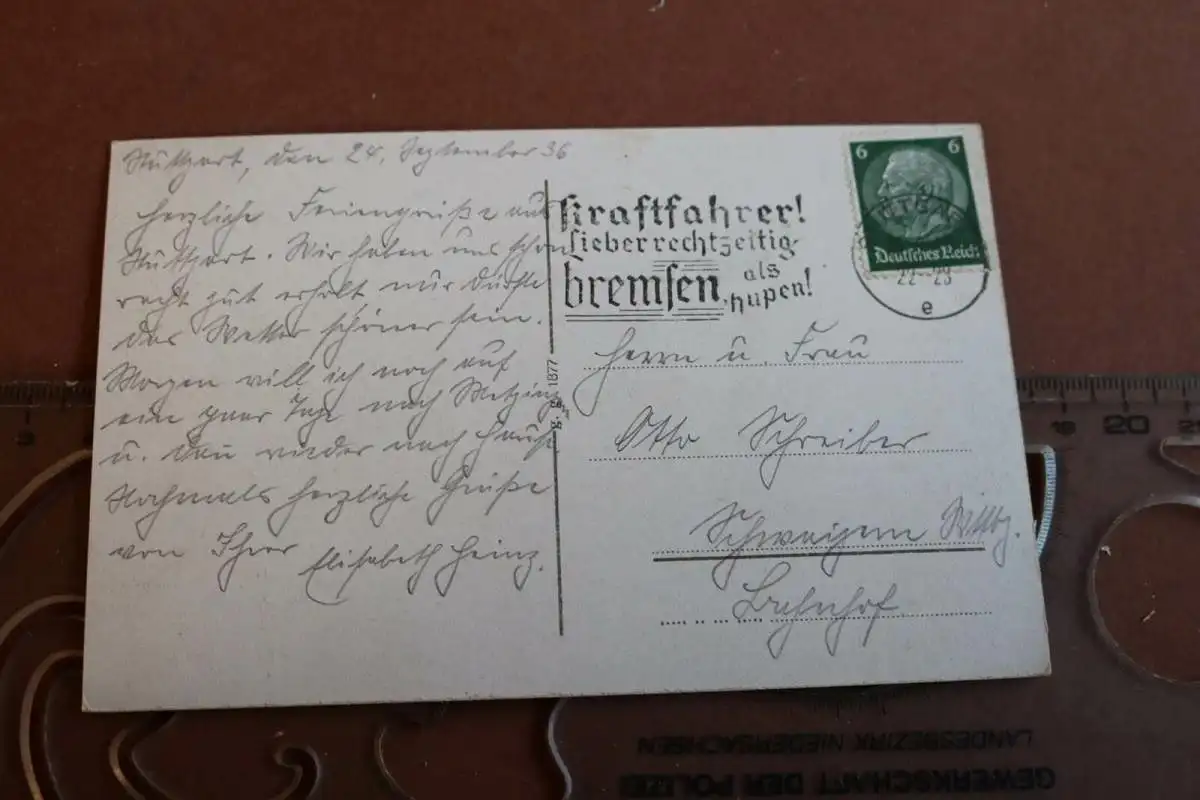 Stuttgart, den 24. September 36
Herzliche Feriengrüße aus
Stuttgart. Wir haben uns schon
recht gut erholt nur dürfte
das Wetter schöner sein.
Morgen will ich noch auf
ein paar Tage nach Metzingen
u. dann wieder nach Hause
Nochmals herzliche Grüße
von Ihrer Elisabeth Heinz.
Kraftfahrer!
Lieber rechtzeitig
bremsen, als
hupen!
6 6
Deutsches Reich
22-23
e
1877
Herrn u. Frau
Otto Schreiber
Schwaigern Wttbg.
Bahnhof
20
LANDESBEZIRK NIEDERSACHSEN
GEWERKSCHAFT DER POLIZEI